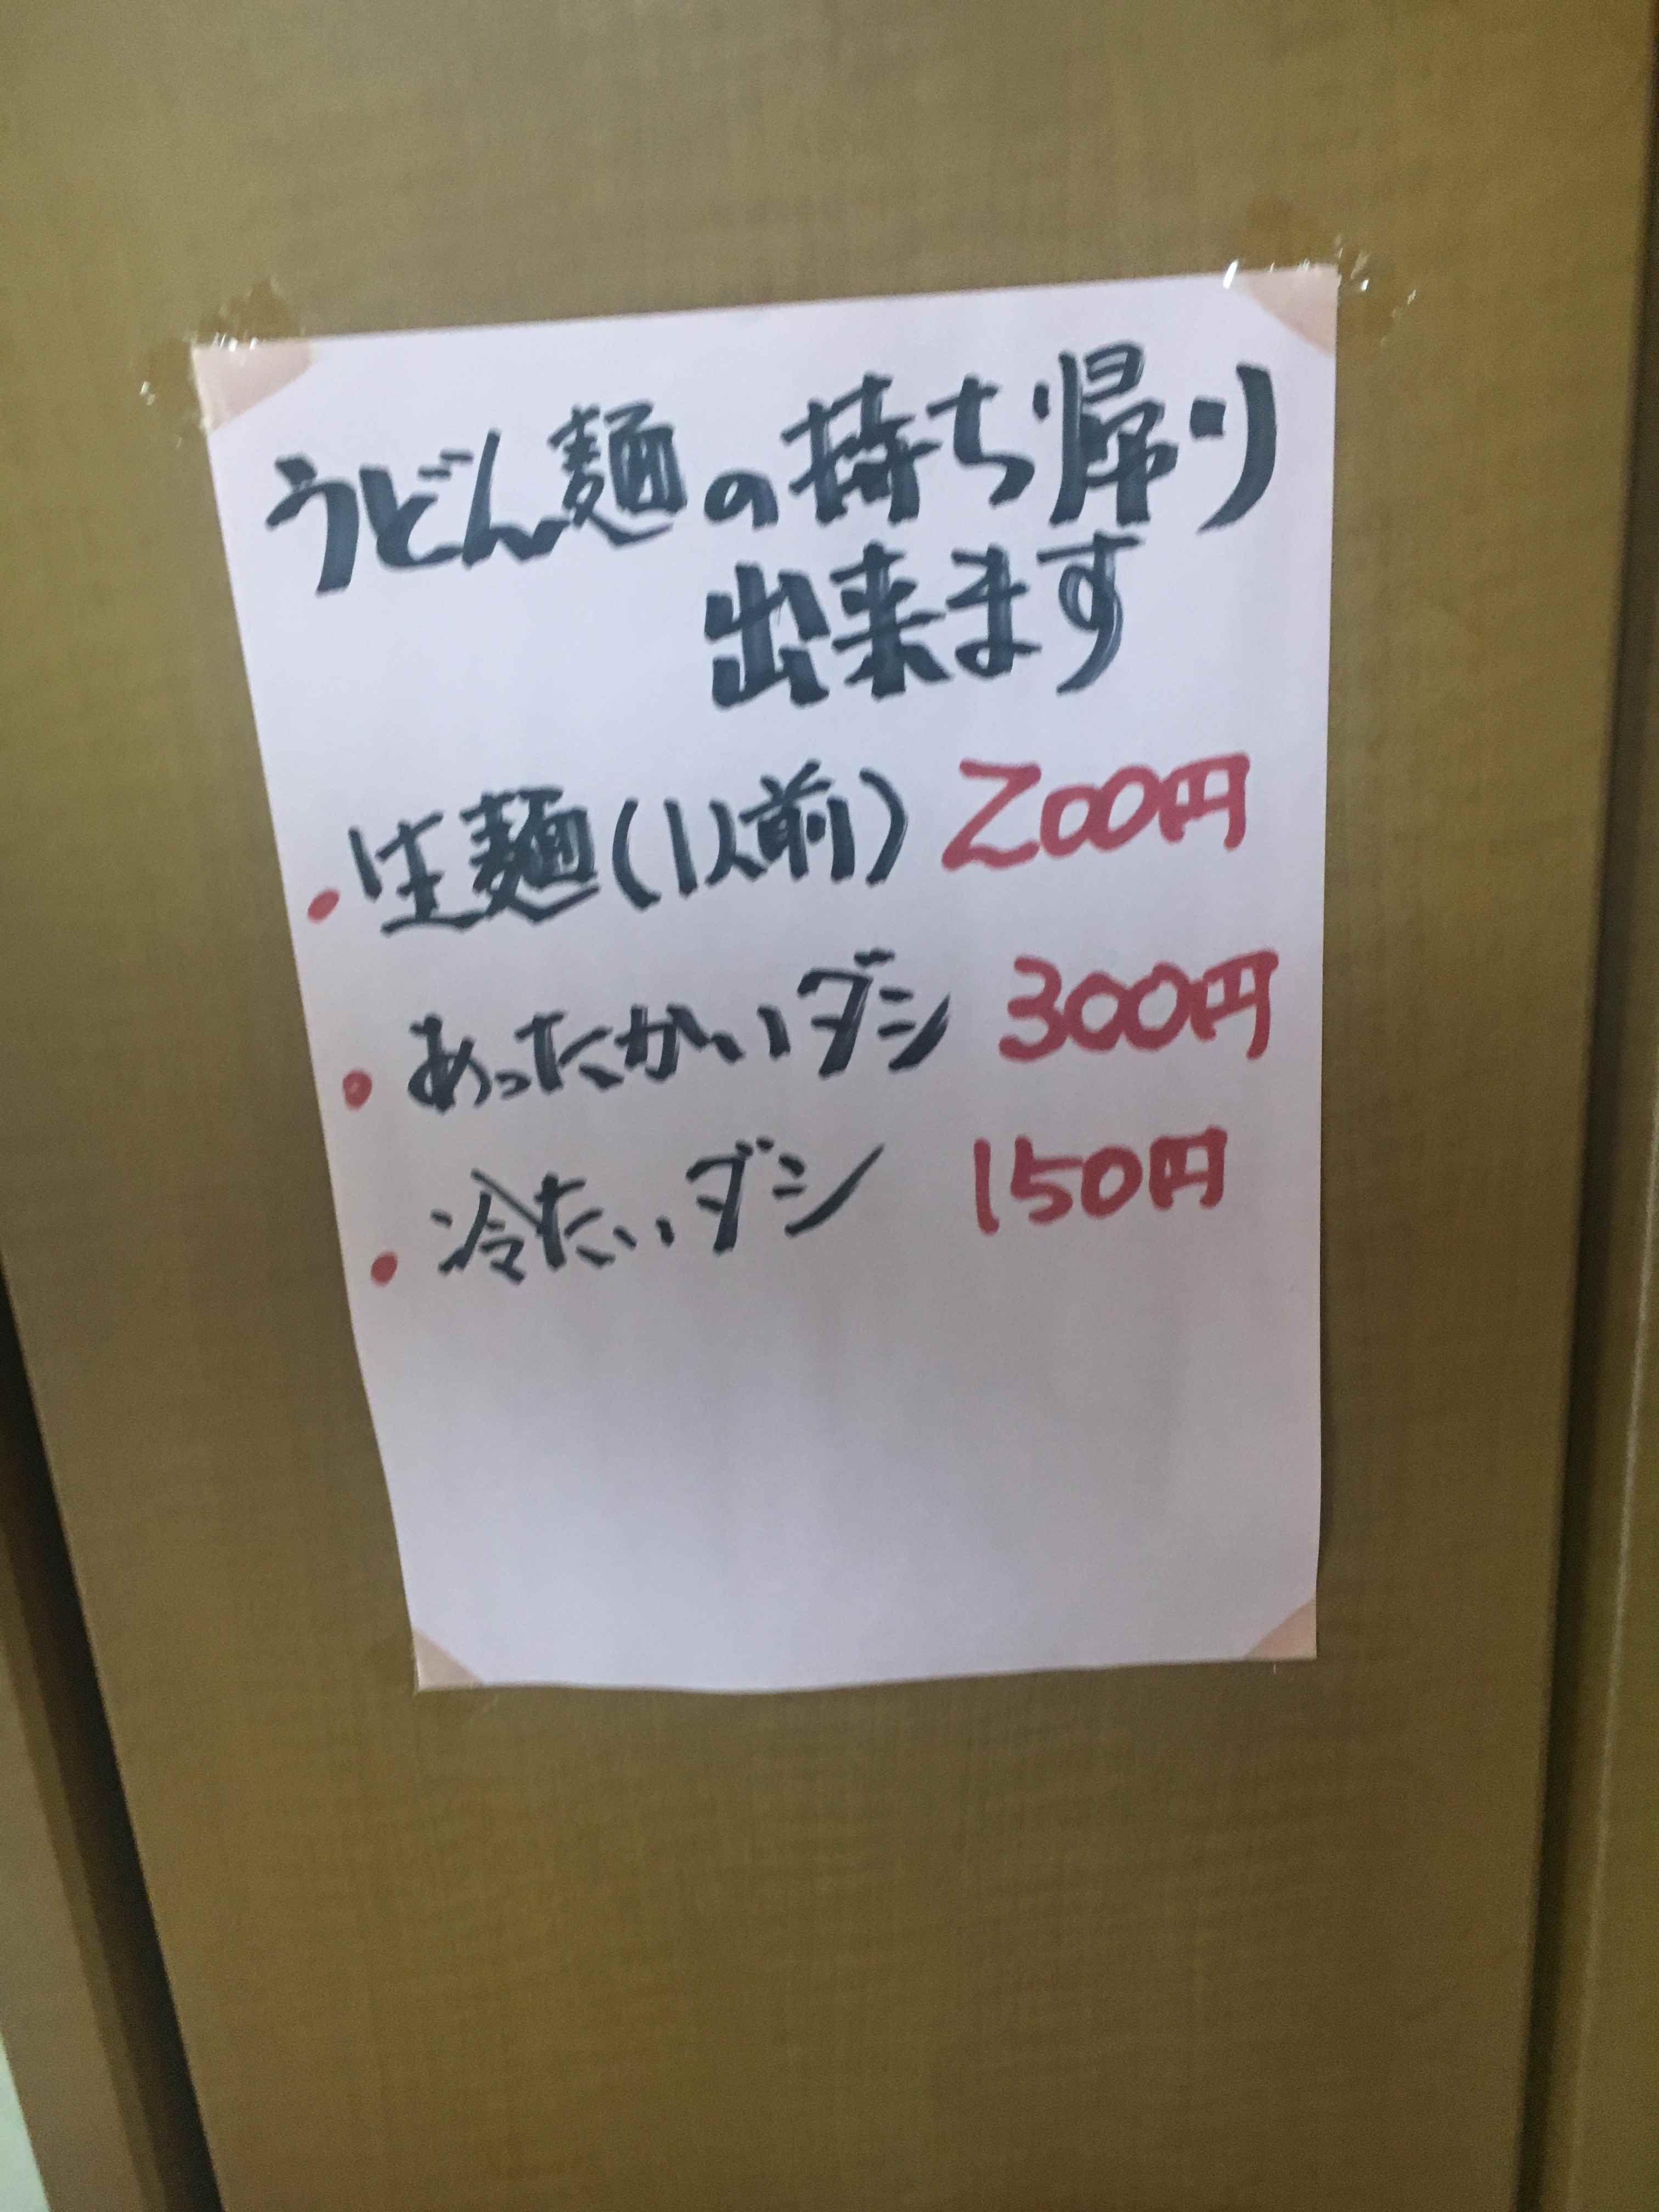 うどん麺の持ち帰り
出来ます
・生麺(1人前) 200円
・あったかいダシ 300円
・冷たいダシ 150円